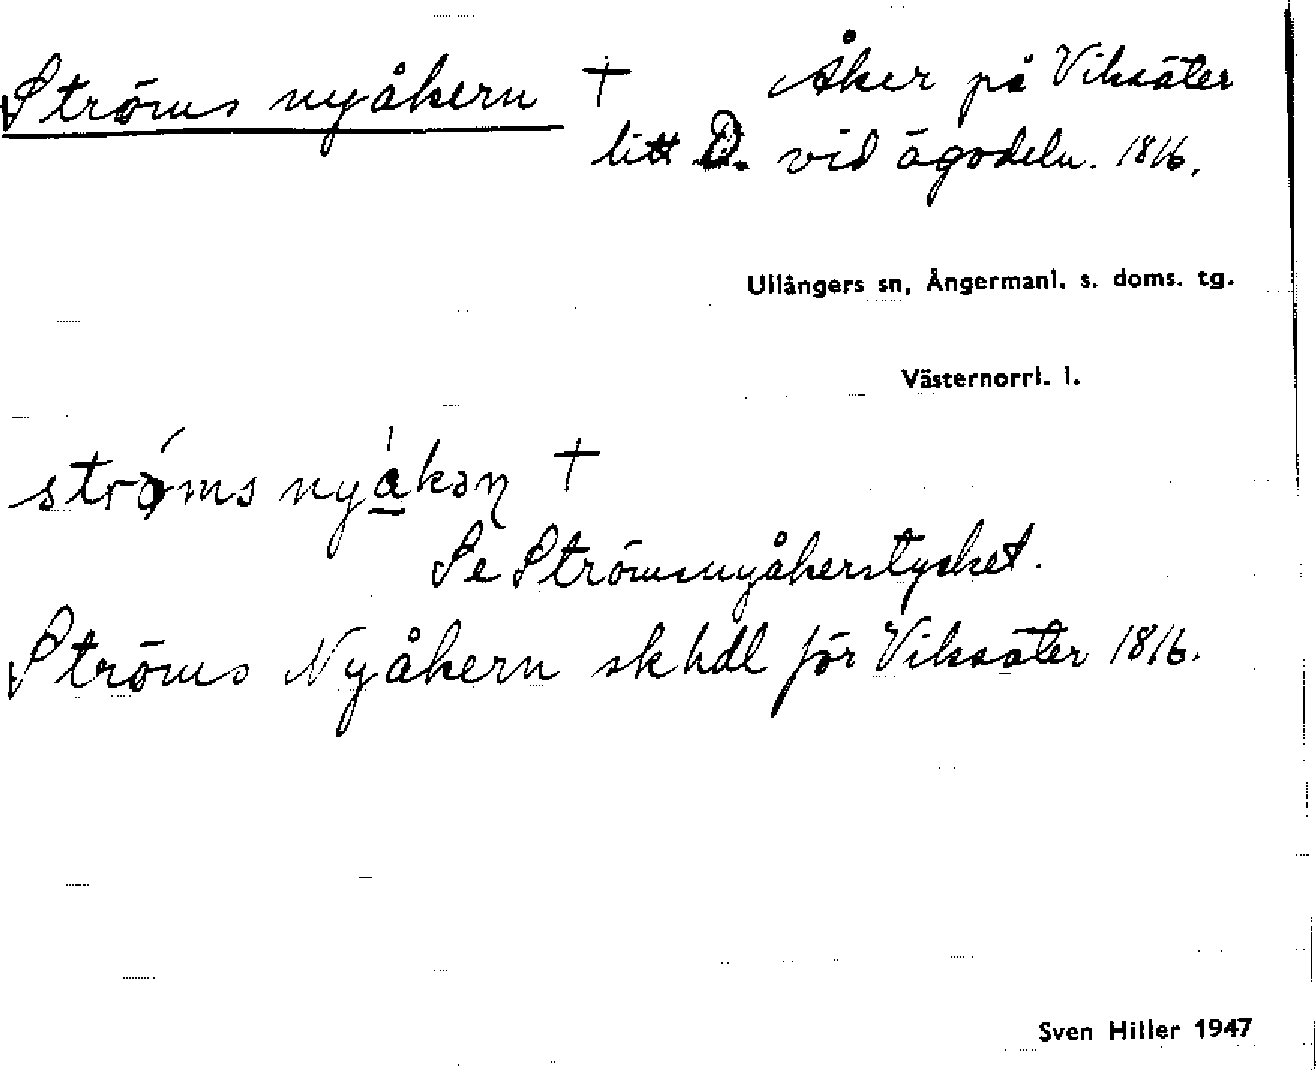 Ströms nyåkern † Åker på Viksäter
litt D. vid ägodeln. 1816.
Ullångers sn, Ångermanl. s. doms. tg.
Västernorrl. l.
strø´ms ny a̲ ̍kəɳ †
Se Strömsnyåkerstycket.
Ströms Nyåkern skhdl för Viksäter 1816.
Sven Hiller 1947